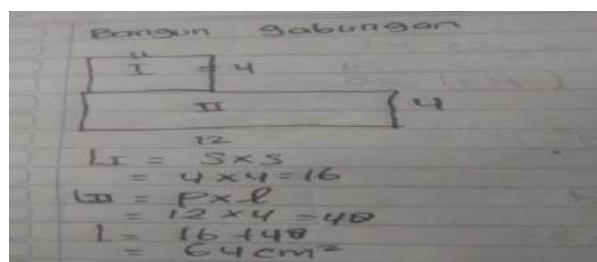 Bangun gabungan
4
I 4
II 4
12
LI = S x S
= 4 x 4 = 16
LII = P x l
= 12 x 4 = 48
L = 16 + 48
= 64 cm²